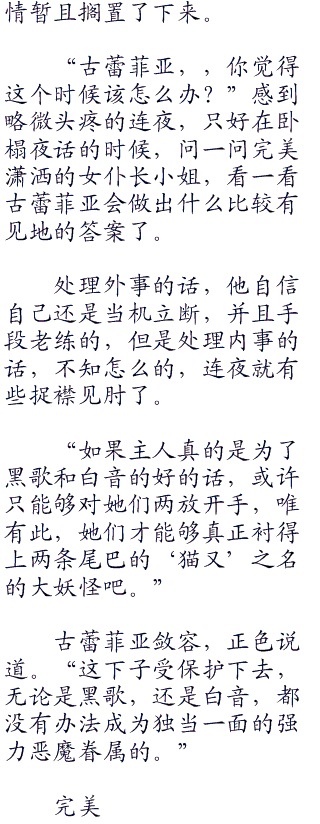 情暂且搁置了下来。
“古蕾菲亚，，你觉得
这个时候该怎么办？”感到
略微头疼的连夜，只好在卧
榻夜话的时候，问一问完美
潇洒的女仆长小姐，看一看
古蕾菲亚会做出什么比较有
见地的答案了。
处理外事的话，他自信
自己还是当机立断，并且手
段老练的，但是处理内事的
话，不知怎么的，连夜就有
些捉襟见肘了。
“如果主人真的是为了
黑歌和白音的好的话，或许
只能够对她们两放开手，唯
有此，她们才能够真正衬得
上两条尾巴的‘猫又’之名
的大妖怪吧。”
古蕾菲亚敛容，正色说
道。“这下子受保护下去，
无论是黑歌，还是白音，都
没有办法成为独当一面的强
力恶魔眷属的。”
完美